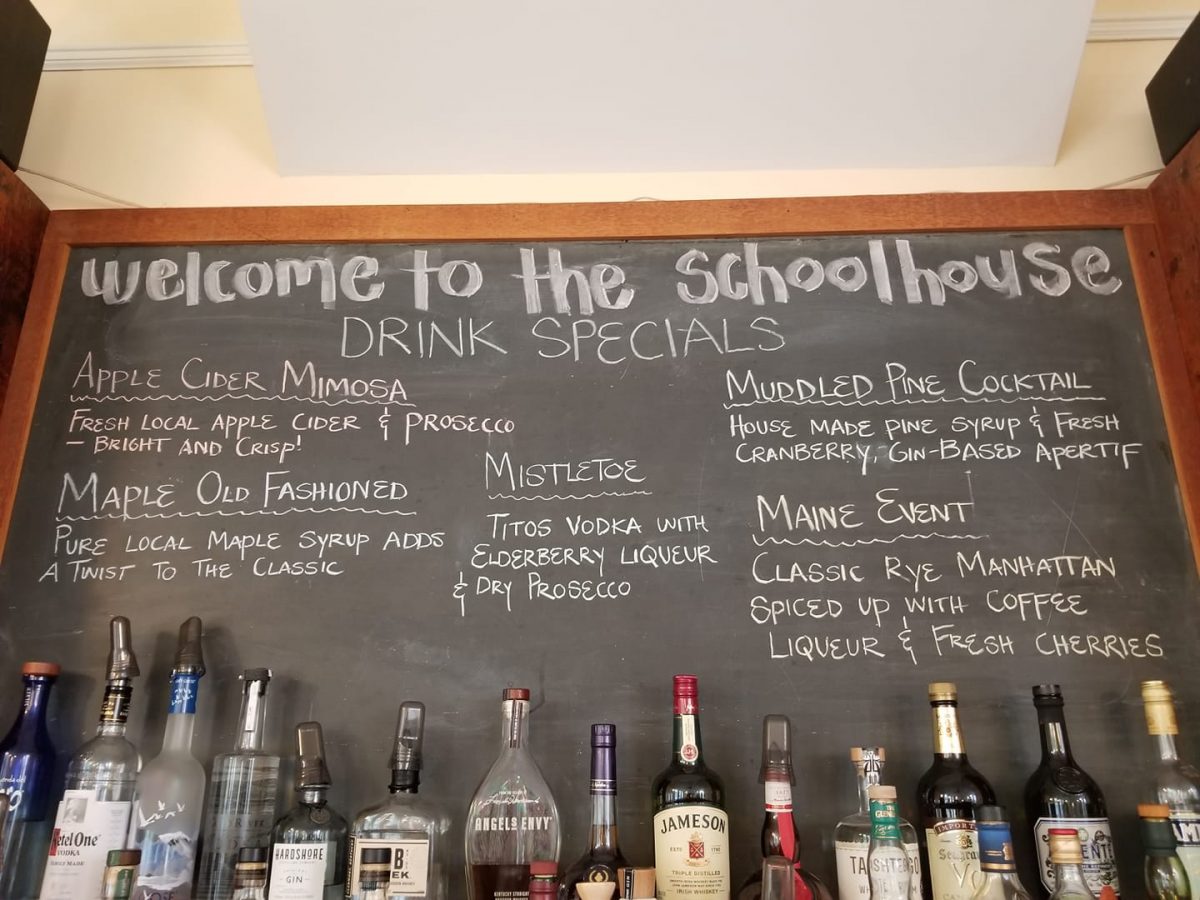 welcome to the schoolhouse
DRINK SPECIALS
APPLE CIDER MIMOSA
FRESH LOCAL APPLE CIDER & PROSECCO
- BRIGHT AND CRISP!
MAPLE OLD FASHIONED
PURE LOCAL MAPLE SYRUP ADDS
A TWIST TO THE CLASSIC
MISTLETOE
TITOS VODKA WITH
ELDERBERRY LIQUEUR
& DRY PROSECCO
MUDDLED PINE COCKTAIL
HOUSE MADE PINE SYRUP & FRESH
CRANBERRY, GIN-BASED APERTIF
MAINE EVENT
CLASSIC RYE MANHATTAN
SPICED UP WITH COFFEE
LIQUEUR & FRESH CHERRIES
etel One
VODKA
HARDSHORE
GIN
ANGEL'S ENVY
KENTUCKY STRAIGHT
JAMESON
TRIPLE DISTILLED
IRISH WHISKEY
IMPORTED
Seagram
VO